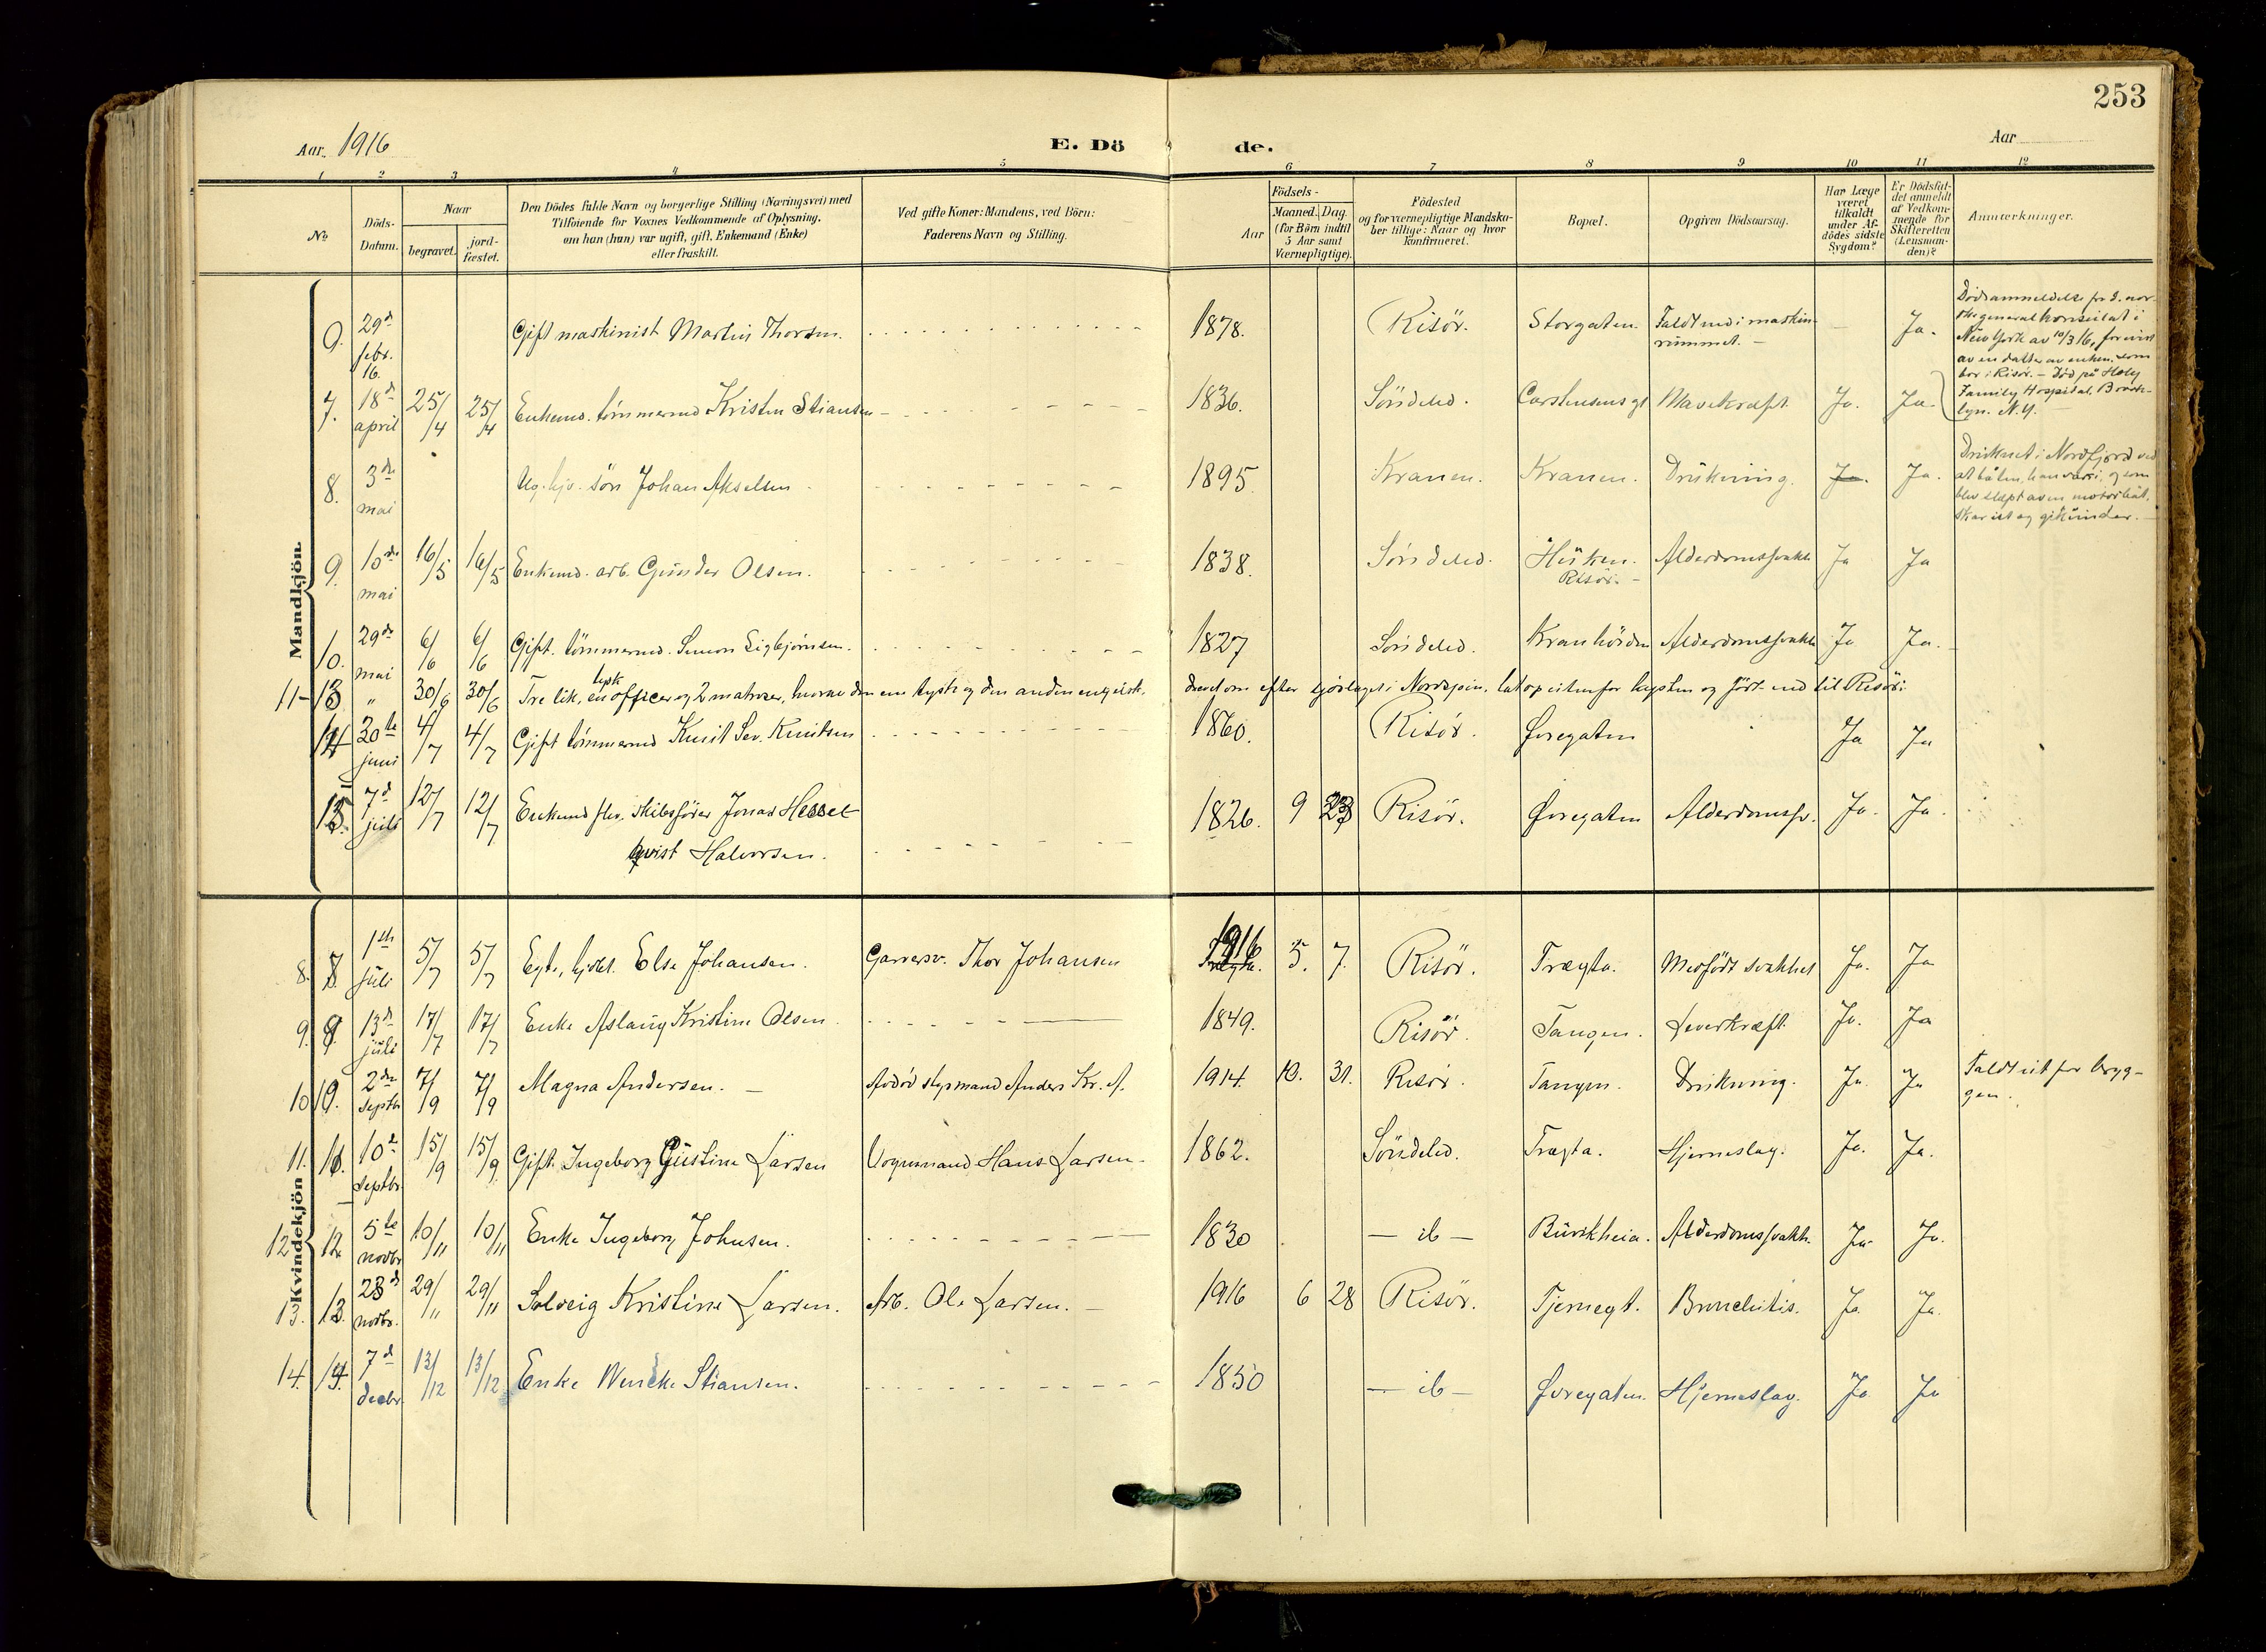 253
Aar 1916
E. Dö de.
Aar
1 2 3 4 5 6 7 8 9 10 11 12
No.
Döds-Datum.
Naar
begravet.
jord-fæstet.
Den Dödes fulde Navn og borgerlige Stilling (Næringsvei) med
Tilföiende for Voxnes Vedkommende af Oplysning,
om han (hun) var ugift, gift, Enkemand (Enke)
eller fraskilt.
Ved gifte Koner: Mandens, ved Börn:
Faderens Navn og Stilling.
Födsels-
Aar
Maaned. Dag.
(for Börn indtil
5 Aar samt
Værnepligtige).
Födested
og for værnepligtige Mandska-
ber tillige: Naar og hvor
konfirmeret.
Bopæl.
Opgiven Dödsaarsag.
Har Læge
været
tilkaldt
under Af-
dödes sidste
Sygdom?
Er Dödsfal-
det anmeldt
af Vedkom-
mende for
Skifteretten
(Lensman-
den)?
Anmærkninger.
Mandkjön.
9. 29d febr. 16. Gift maskinist Martin Thorsen. 1878. Risör. Storgaten. Faldt ned i maskin-
rummet. — Ja.
Dödsanmeldelse fra d. nor-
ske generalkonsulat i
New York av 10/3 16, forevist
av en datter av enken, som
bor i Risör. — Död på Holy
Family Hospital, Brook-
lyn. N.Y.
7. 18d april 25/4 25/4 Enkemd. tömmermd Kristen Stiansen 1836. Söndeled. Carstensens gt Mavekræft. Ja. Ja.
8. 3de mai Ug. hjv. sön Johan Akselsen 1895. Kranen. Kranen. Drukning. Ja. Ja.
Druknet i Nordfjord ved
at båten, han var i, og som
blev slæpt av en motorbåt,
skar ut og gik under. —
9. 10de mai 16/5 16/5 Enkemd. arb. Gunder Olsen. 1838. Söndeled. Hüken. Risör. — Alderdomssvakh. Ja Ja
10. 29de mai 6/6 6/6 Gift. tömmermd. Simon Sigbjörnsen. 1827 Söndeled. Kranhöiden Alderdomssvakh. Ja Ja.
11-13 " 30/6 30/6 Tre lik, en tysk officer og 2 matroser, hvorav den ene tysk og den anden engelsk, drevet om efter sjöslaget i Nordsjöen, tat op utenfor kysten og fört ind til Risör.
14 30te juni 4/7 4/7 Gift tömmermd Knut Sev. Knutsen 1860. Risör. Övregaten Ja Ja
15. 7d juli 12/7 12/7 Enkemd fhv. skibsförer Jonas Hessel
qvist Halvorsen. 1826. 9 23 Risör. Övregaten Alderdomssv. Ja. Ja.
Kvindekjön
8. 1ste juli 5/7 5/7 Egte, hjdt. Else Johansen. Garversv. Thor Johansen 1916 5. 7. Risör. Trægta. Medfödt svakhet Ja. Ja
9. 13d juli 17/7 17/7 Enke Aslaug Kristine Olsen. 1849. Risör. Tangen. Leverkræft. Ja. Ja
10 2den septbr 7/9 7/9 Magna Andersen. — Avdöd styrmand Anders Kr. A. 1914. 10. 31. Risör. Tangen. Drukning. Ja. Ja Faldt ut for bryg-
gen.
11. 10d septbr. 15/9 15/9 Gift. Ingeborg Gustine Larsen Vognmand Hans Larsen. 1862. Söndeled. Trægta. Hjerneslag. Ja. Ja.
12 5te novbr 10/11 10/11 Enke Ingeborg Johnsen. 1830 — ib — Buvikheia. Alderdomssvakh. Ja. Ja.
13. 23d novbr. 29/11 29/11 Solveig Kristine Larsen. Arb. Ole Larsen. — 1916 6 28 Risör. Tjernegt. Bronchitis. Ja. Ja.
14. 7d decbr 13/12 13/12 Enke Wencke Stiansen. 1850 — ib — Övregaten. Hjerneslag. Ja Ja